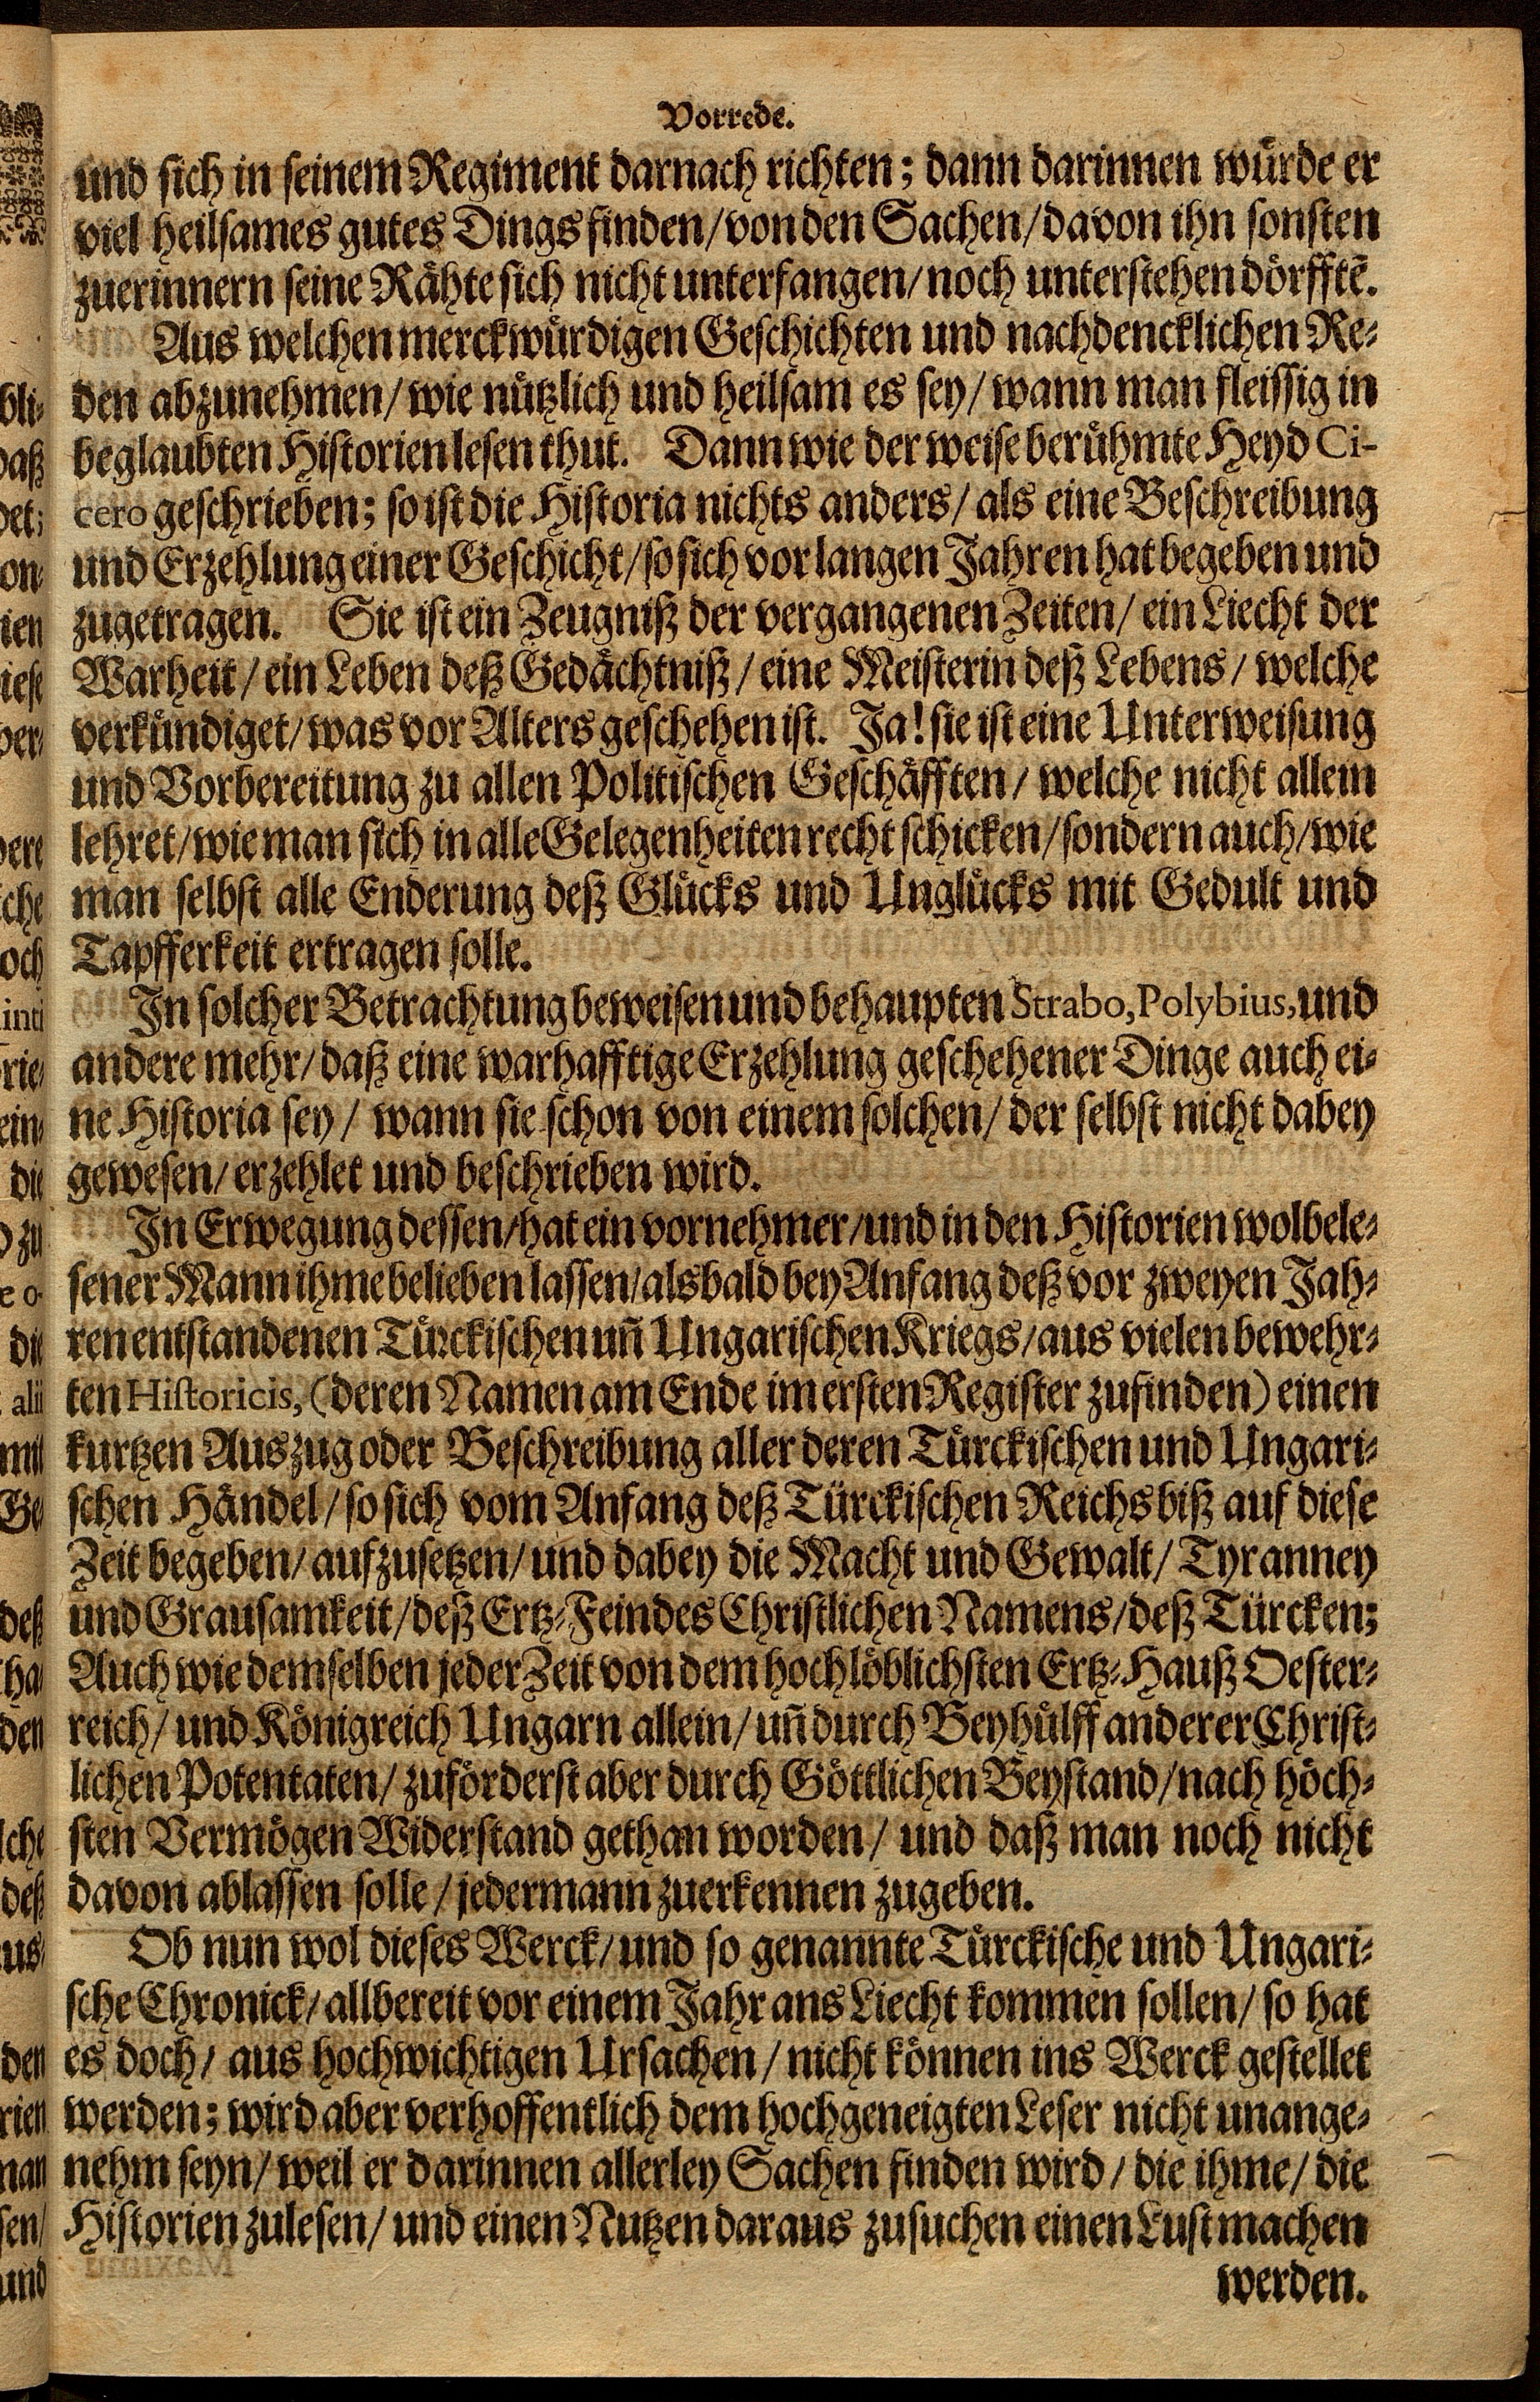 Vorrede.
und sich in seinem Regiment darnach richten; dann darinnen würde er
viel heilsames gutes Dings finden/ von den Sachen/ davon ihn sonsten
zuerinnern seine Rähte sich nicht unterfangen/ noch unterstehen dörfftẽ.
Aus welchen merckwürdigen Geschichten und nachdencklichen Re-
den abzunehmen/ wie nützlich und heilsam es sey/ wann man fleissig in
beglaubten Historien lesen thut. Dann wie der weise berühmte Heyd Ci-
cero geschrieben; so ist die Historia nichts anders/ als eine Beschreibung
und Erzehlung einer Geschicht/ so sich vor langen Jahren hat begeben und
zugetragen. Sie ist ein Zeugniß der vergangenen Zeiten/ ein Liecht der
Warheit/ ein Leben deß Gedächtniß/ eine Meisterin deß Lebens/ welche
verkündiget/ was vor Alters geschehen ist. Ja! sie ist eine Unterweisung
und Vorbereitung zu allen Politischen Geschäfften/ welche nicht allein
lehret/ wie man sich in alle Gelegenheiten recht schicken/ sondern auch/ wie
man selbst alle Enderung deß Glücks und Unglücks mit Gedult und
Tapfferkeit ertragen solle.
In solcher Betrachtung beweisen und behaupten Strabo, Polybius, und
andere mehr/ daß eine warhafftige Erzehlung geschehener Dinge auch ei-
ne Historia sey/ wann sie schon von einem solchen/ der selbst nicht dabey
gewesen/ erzehlet und beschrieben wird.
In Erwegung dessen/ hat ein vornehmer/ und in den Historien wolbele-
sener Mann ihme belieben lassen/ alsbald bey Anfang deß vor zweyen Jah-
ren entstandenen Türckischen uñ Ungarischen Kriegs/ aus vielen bewehr-
ten Historicis, (deren Namen am Ende im ersten Register zufinden) einen
kurtzen Auszug oder Beschreibung aller deren Türckischen und Ungari-
schen Händel/ so sich vom Anfang deß Türckischen Reichs biß auf diese
Zeit begeben/ aufzusetzen/ und dabey die Macht und Gewalt/ Tyranney
und Grausamkeit/ deß Ertz-Feindes Christlichen Namens/ deß Türcken;
Auch wie demselben jeder Zeit von dem hochlöblichsten Ertz-Hauß Oester-
reich/ und Königreich Ungarn allein/ uñ durch Beyhülff anderer Christ-
lichen Potentaten/ zuförderst aber durch Göttlichen Beystand/ nach höch-
sten Vermögen Widerstand gethan worden/ und daß man noch nicht
davon ablassen solle/ jedermann zuerkennen zugeben.
Ob nun wol dieses Werck/ und so genannte Türckische und Ungari-
sche Chronick/ allbereit vor einem Jahr ans Liecht kommen sollen/ so hat
es doch/ aus hochwichtigen Ursachen/ nicht können ins Werck gestellet
werden; wird aber verhoffentlich dem hochgeneigten Leser nicht unange-
nehm seyn/ weil er darinnen allerley Sachen finden wird/ die ihme/ die
Historien zulesen/ und einen Nutzen daraus zusuchen einen Lust machen
werden.